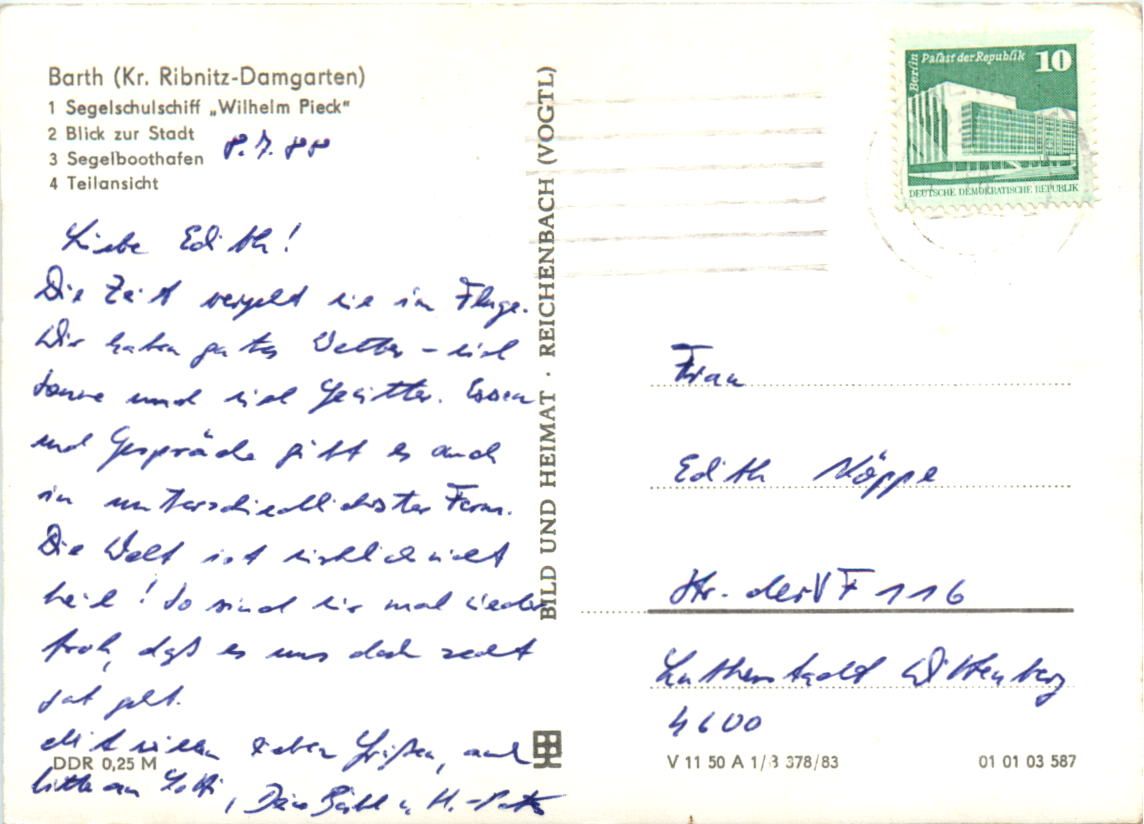 Barth (Kr. Ribnitz-Damgarten)
1 Segelschulschiff „Wilhelm Pieck"
2 Blick zur Stadt
3 Segelboothafen
4 Teilansicht
8.7.88
Liebe Edith!
Die Zeit vergeht wie im Fluge.
Wir haben gutes Wetter – viel
Sonne und viel Gewitter. Essen
und Gespräche gibt es auch
in unterschiedlichster Form.
Die Welt ist wirklich nicht
heil! So sind wir mal wieder
froh, daß es uns doch recht
gut geht.
Mit vielen lieben Grüßen, auch
bitte an
DDR 0,25 M
BILD UND HEIMAT · REICHENBACH (VOGTL)
Berlin Palast der Republik 10
DEUTSCHE DEMOKRATISCHE REPUBLIK
Frau
Edith Köppe
Str. der VF 116
Lutherstadt Wittenberg
4600
V 11 50 A 1/B 378/83
01 01 03 587